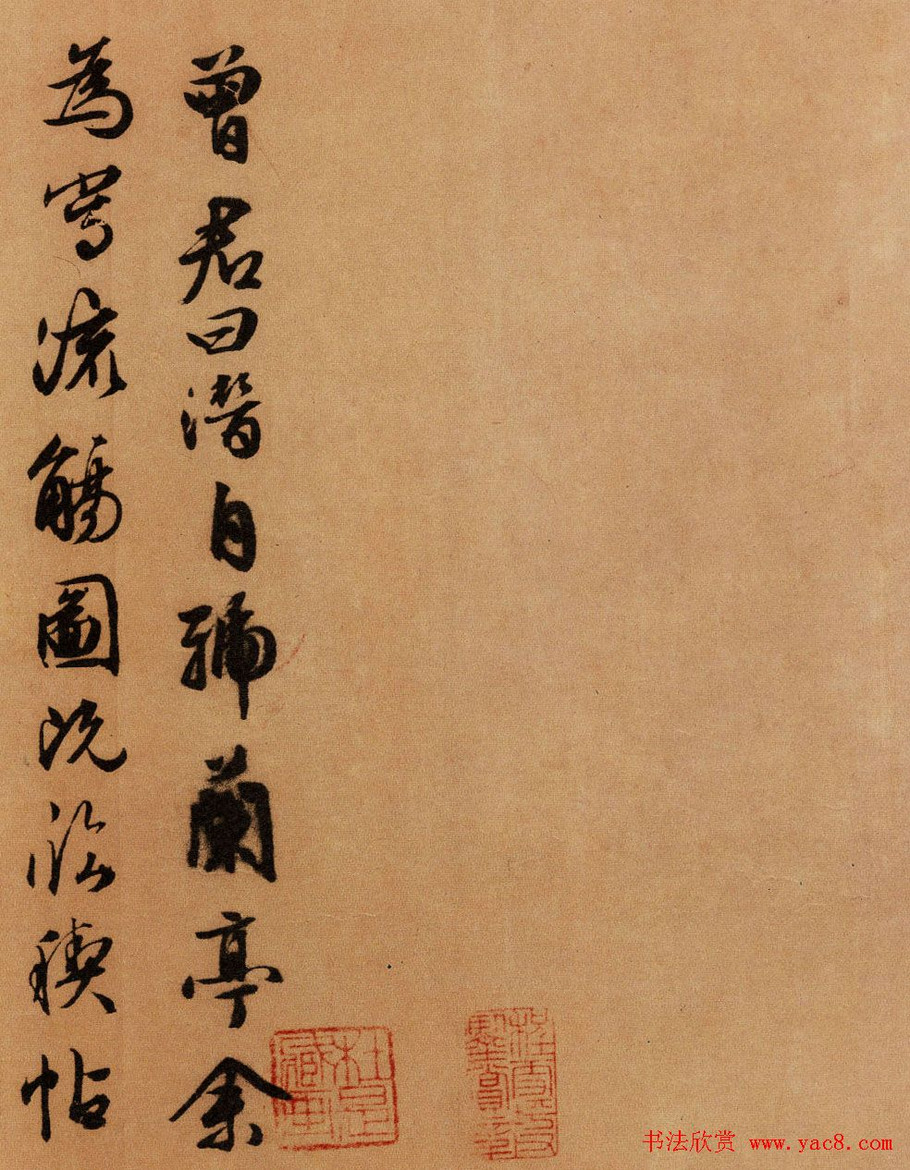 曾君曰潛自號蘭亭余
為寫流觴圖既臨禊帖
书法欣赏 www.yac8.com